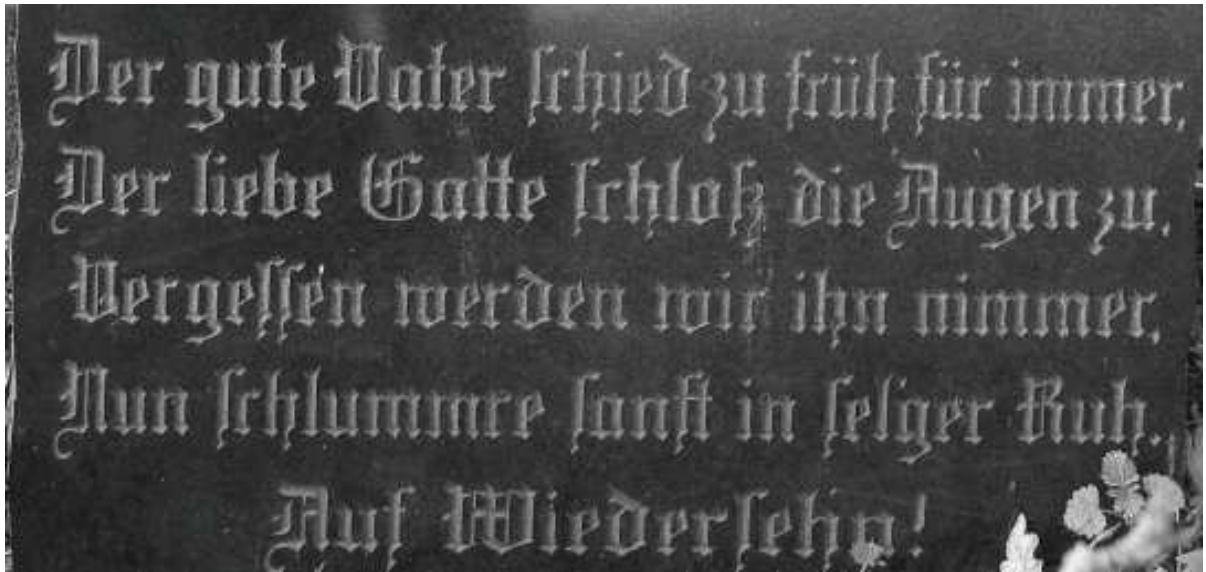 Der gute Vater schied zu früh für immer,
Der liebe Gatte schloß die Augen zu.
Vergessen werden wir ihn nimmer,
Nun schlummre sanft in selger Ruh.
Auf Wiedersehn!